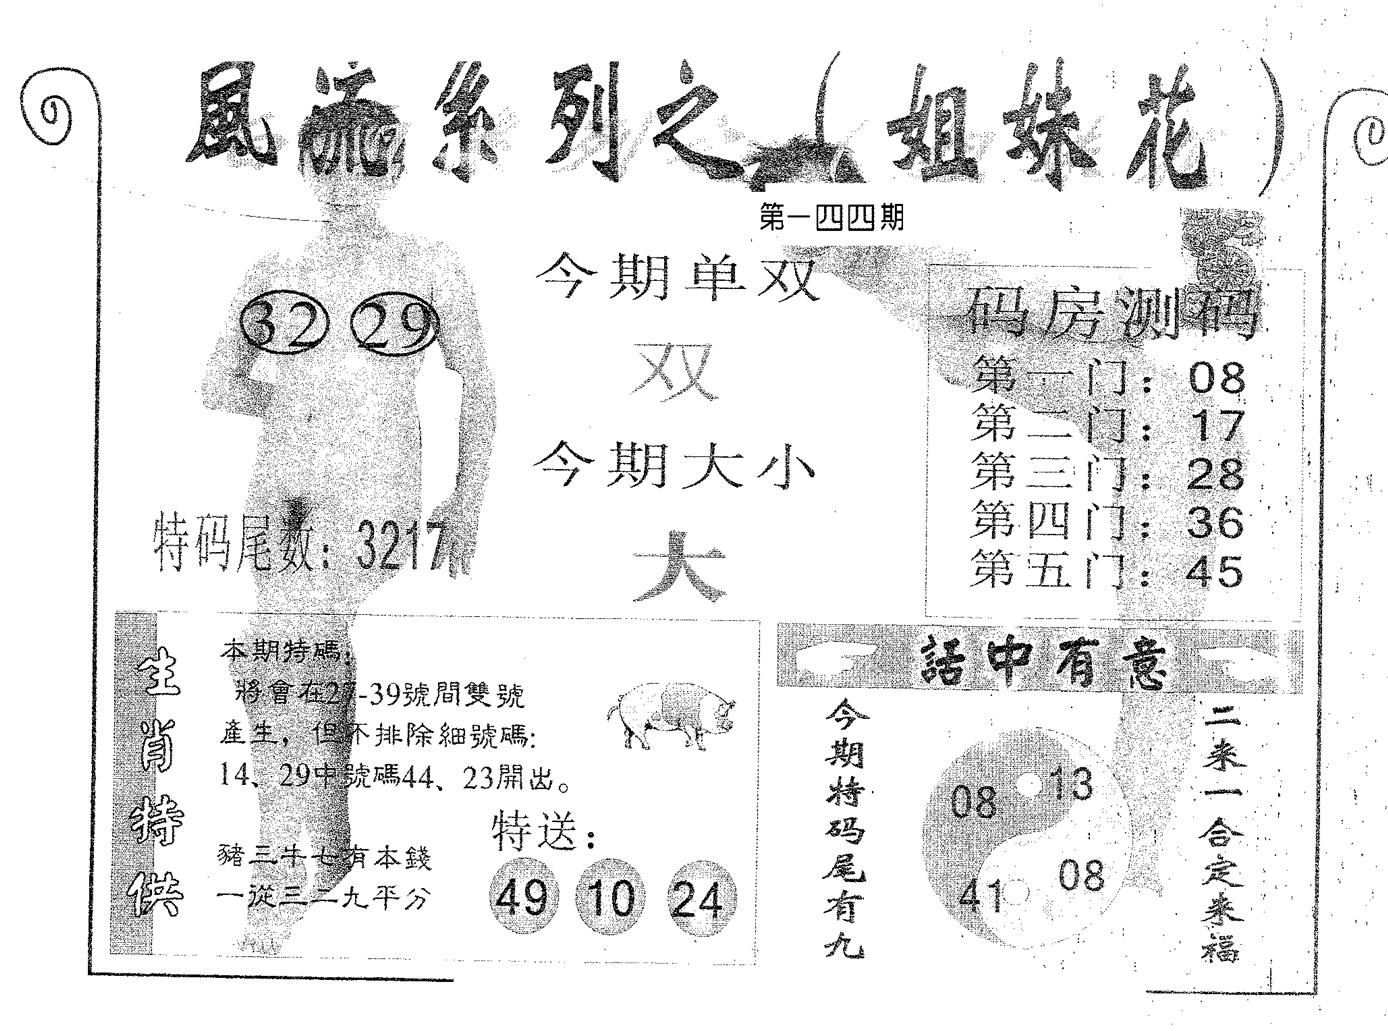 風流系列之（姐妹花）
第一四四期
32 29
今期单双
双
今期大小
大
特码尾数：3217
码房测码
第一门：08
第二门：17
第三门：28
第四门：36
第五门：45
生肖特供
本期特碼：
將會在27-39號間雙號
產生，但不排除細號碼：
14、29中號碼44、23開出。
豬三牛七有本錢
一從三二九平分
特送：
49 10 24
話中有意
今期特码尾有九
08 13
41 08
二来一合定来福